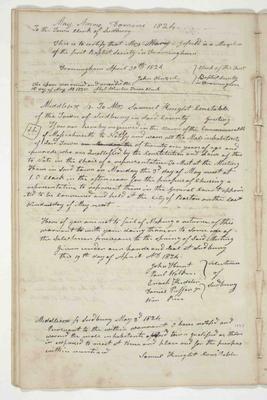 May Annoq Domini 1824
To the Town Clerk of Sudbury
This is to certify that Mrs is a Member
of the first Baptist Society in Framingham
Framingham April 30th 1824
Clerk of the first
Baptist Society
in Framingham
Middlesex Ss. To Mr. Samuel Knight Constable
of the Town of Sudbury in said County Greeting
You are hereby required in the name of the Commonwealth
of Massachusetts to notify and warn all the Male inhabitants
of said Town of twenty one years of age and
upwards who are qualified by the constitution and Laws of this
to Vote in the choice of a representative to Meet at the Meeting
House in said town on Monday the day of May next at
O Clock in the afternoon for the purpose of electing a
representative to represent them in the General Court appoint
ed to be convened and held at the City of Boston on the last
Wednesday of May next
Hereof you are not to fail of Making a return of this
warrant with your doings thereon to some one of
the Selectmen previous to the opening of said Meeting
Given under our hands and seal at Sudbury
this 19th day of April AD 1824
John Hunt
Selectmen
of
Sudbury
Middlesex Ss Sudbury May 3d 1824
Pursuant to the within warrant I have notified and
warned the male inhabitants of said town qualified as therein
is exprssed to meet at time and place and for the purpose
within mentioned
Samuel Knight Constable